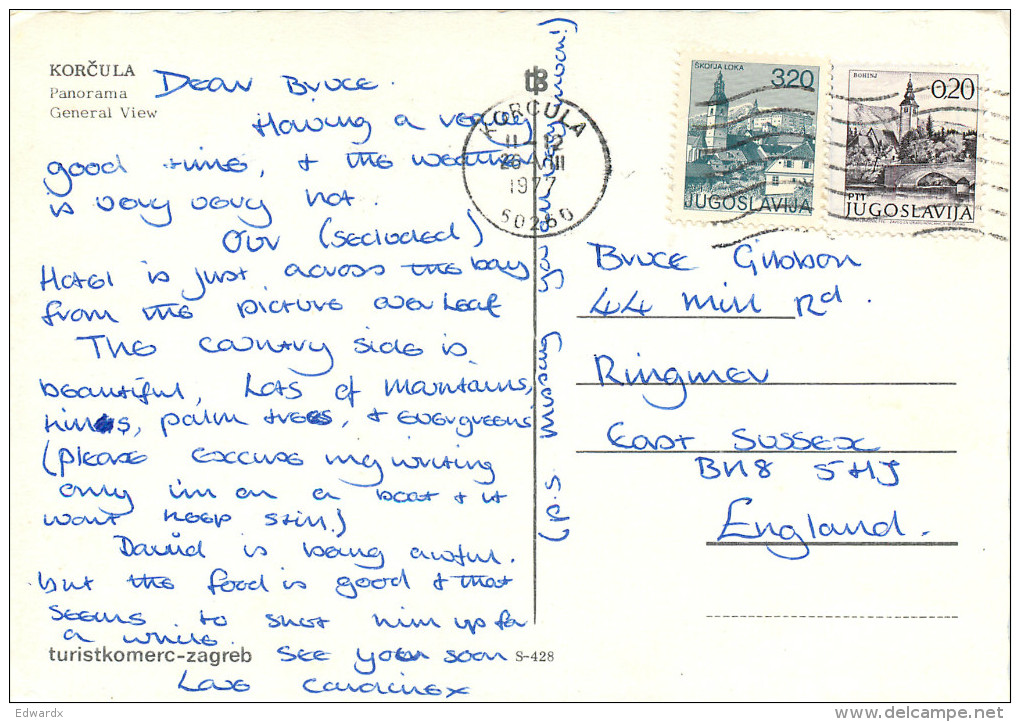 KORČULA
Panorama
General View
Dear Bruce.
Having a very
good time, & the weather
is very very hot.
Our (secluded)
Hotel is just across the bay
from the picture overleaf
The country side is
beautiful, Lots of mountains,
palm trees, & evergreens
(please excuse my writing
only i'm on a boat & it
wont keep still!)
David is being awful.
but the food is good & that
seems to shut him up for
a while.
See you soon
Love
turistkomerc-zagreb
S-428
(P.S. missing you very much!)
KORČULA
11 - 12
26 VIII
1977
50260
ŠKOFJA LOKA
3.20
JUGOSLAVIJA
BOHINJ
0.20
PTT
JUGOSLAVIJA
Bruce Gibbon
44 Mill Rd.
Ringmer
East Sussex
BN8 5HJ
England.
Edwardx
www.delcampe.net